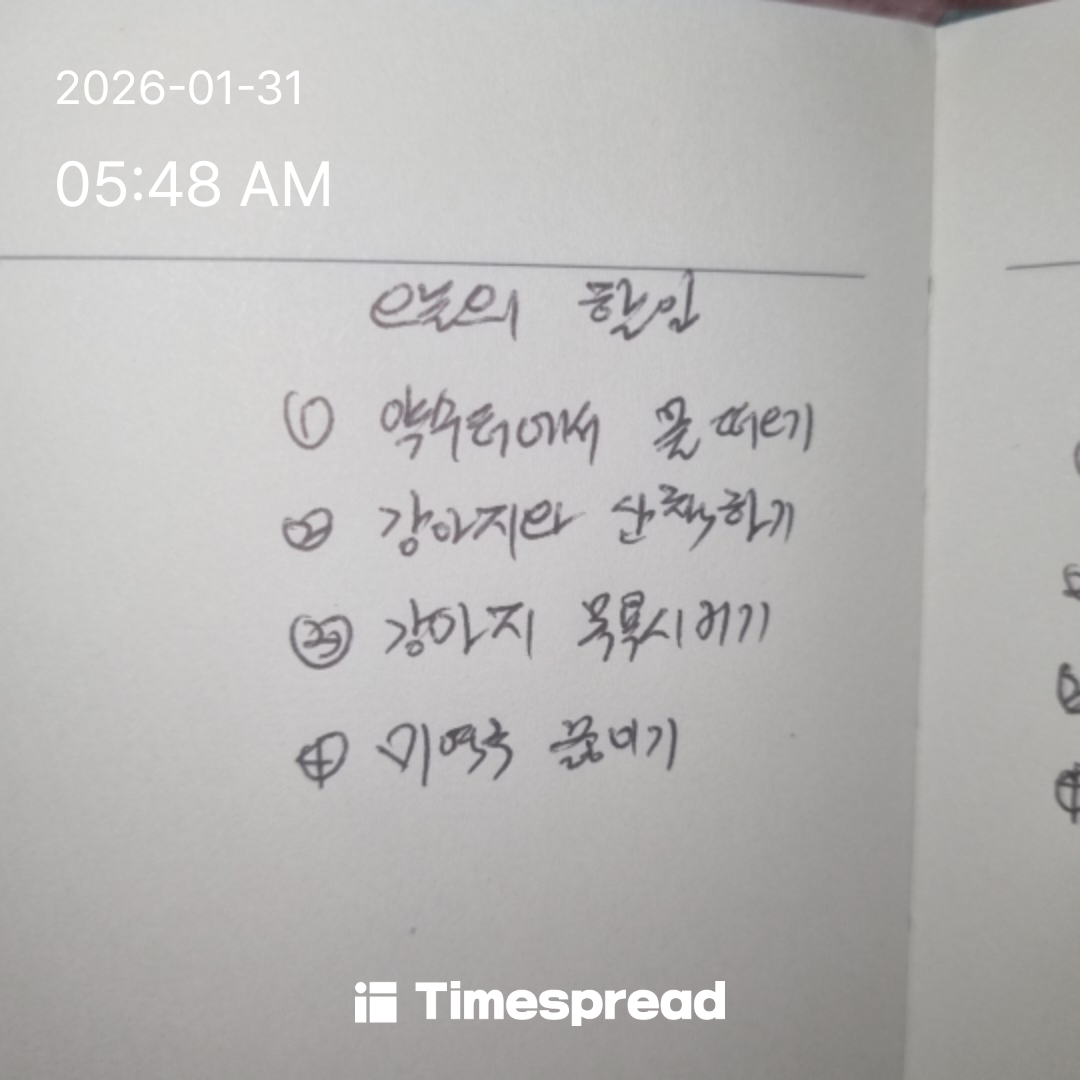 2026-01-31
05:48 AM
오늘의 할일
① 약수터에서 물 떠오기
② 강아지와 산책하기
③ 강아지 목욕시키기
④ 미역국 끓이기
Timespread